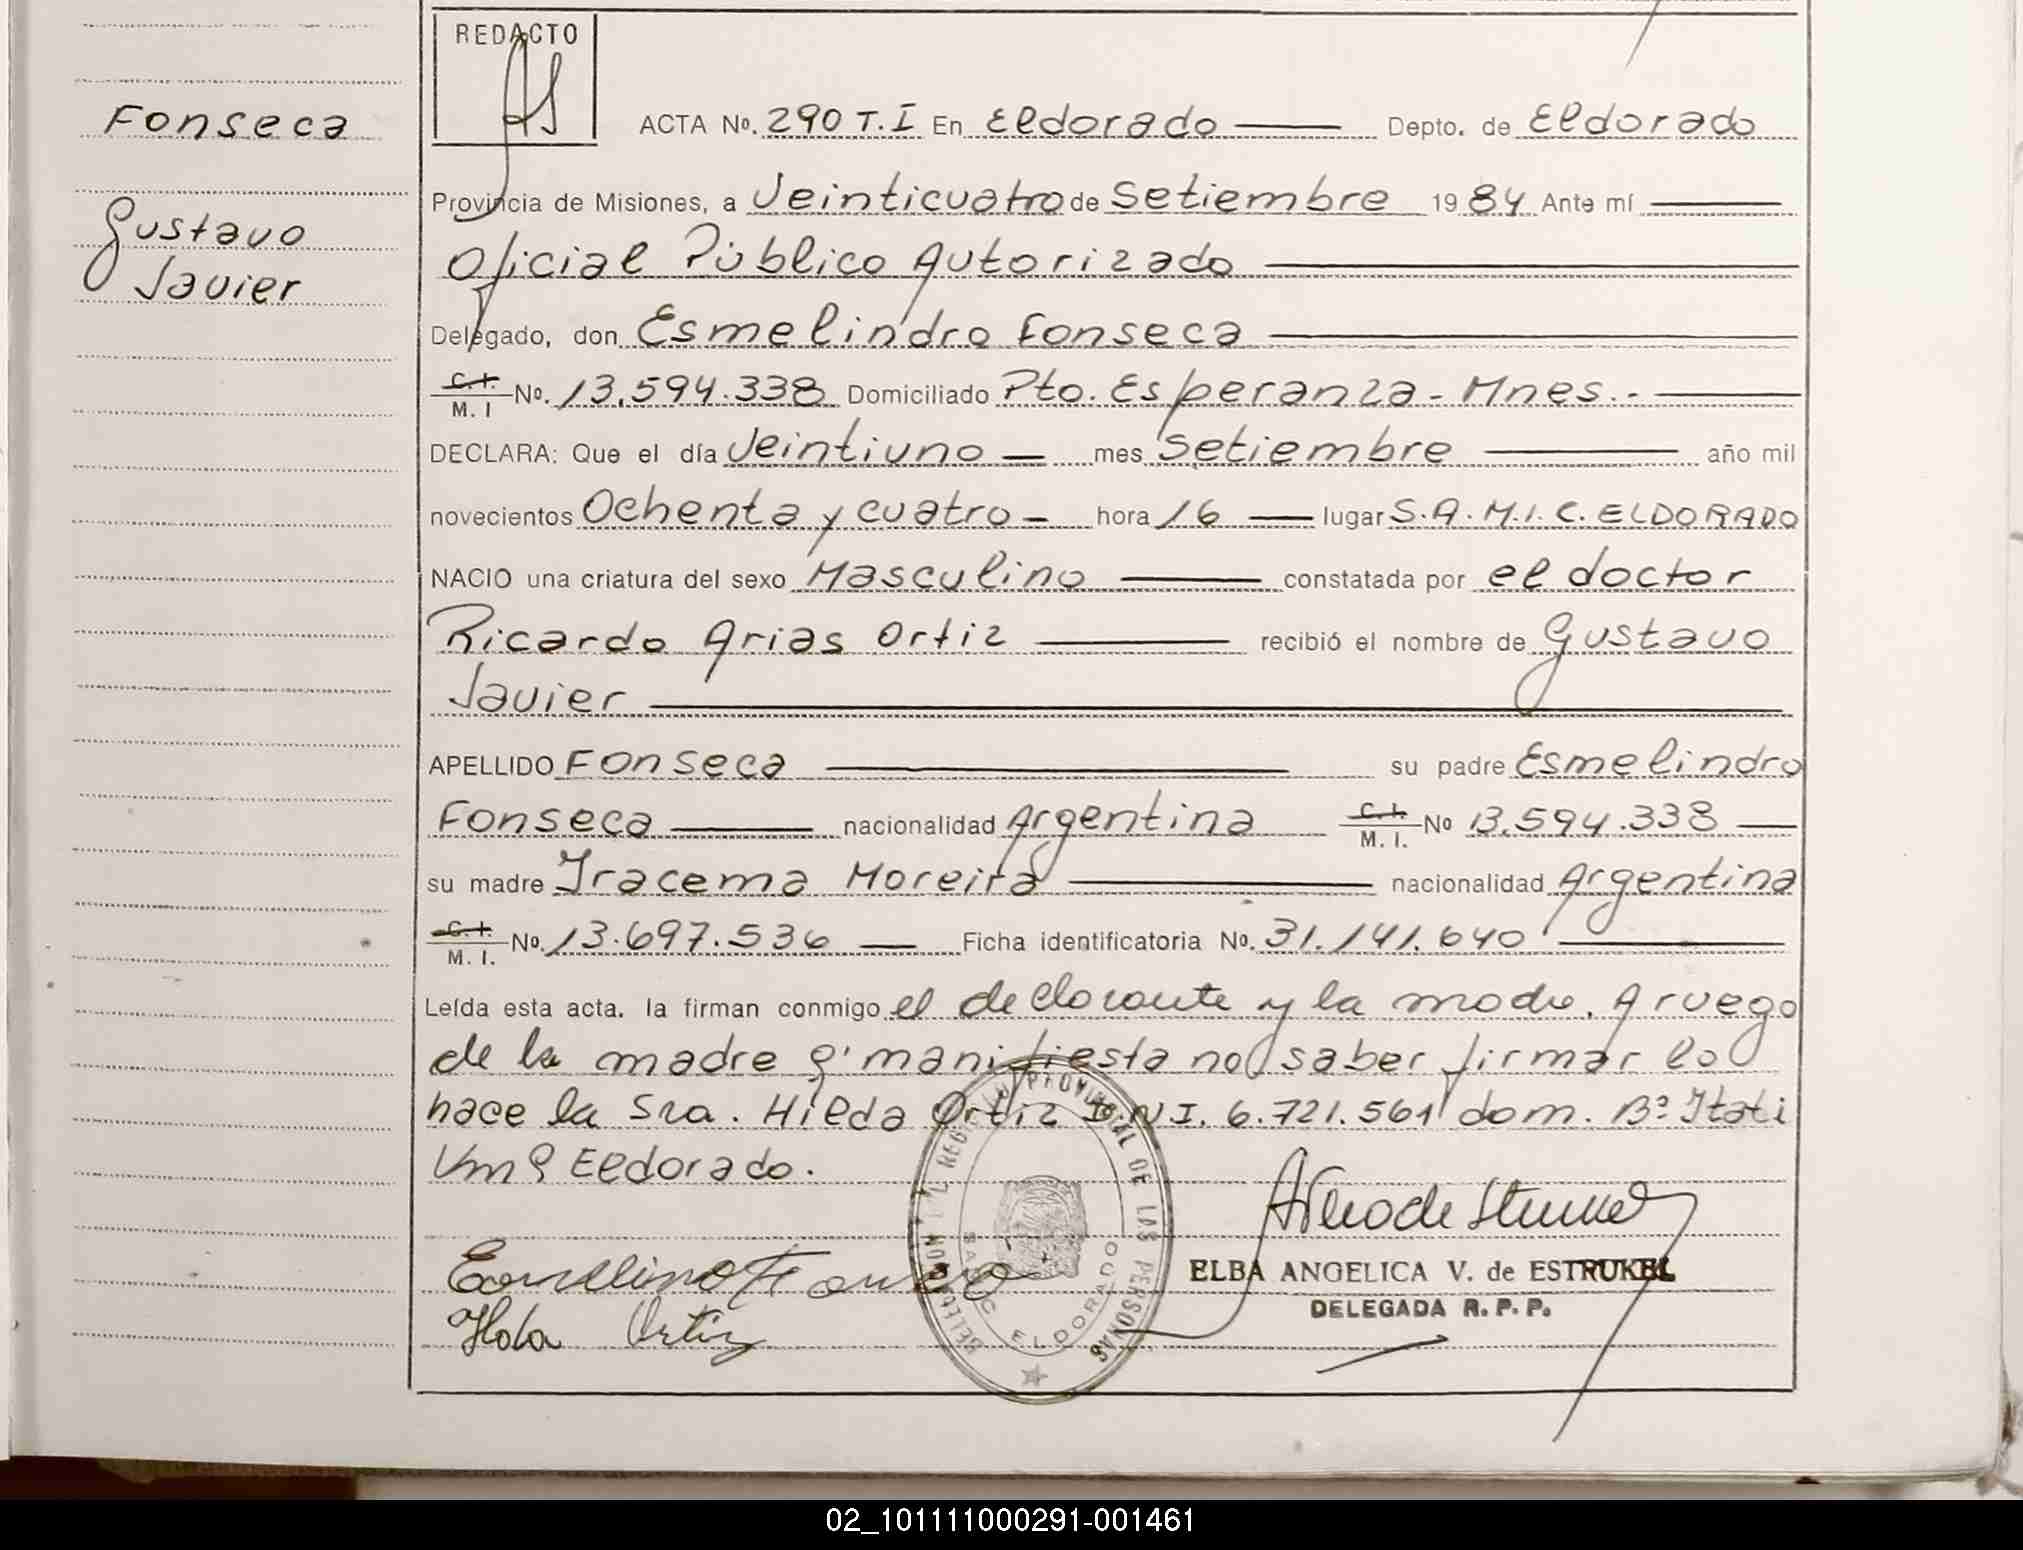 REDACTO
Fonseca
Gustavo
Javier
ACTA No. 290 T.I En Eldorado Depto. de Eldorado
Provincia de Misiones, a Veinticuatro de Setiembre 1984 Ante mí
Oficial Público Autorizado
Delegado, don Esmelindro Fonseca
C.I. M. I No. 13.594.338 Domiciliado Pto. Esperanza - Mnes.-
DECLARA: Que el día Veintiuno mes Setiembre año mil
novecientos Ochenta y cuatro hora 16 lugar S.A.M.I.C. ELDORADO
NACIO una criatura del sexo Masculino constatada por el doctor
Ricardo Arias Ortiz recibió el nombre de Gustavo
Javier
APELLIDO Fonseca su padre Esmelindro
Fonseca nacionalidad Argentina C.I. M. I. No 13.594.338
su madre Iracema Moreira nacionalidad Argentina
C.I. M. I. No. 13.697.536 Ficha identificatoria No. 31.141.640
Leída esta acta. la firman conmigo el declarante y la madre. A ruego
de la madre q' manifiesta no saber firmar lo
hace la Sra. Hilda Ortiz D.N.I. 6.721.561 dom. Bº Itati
Km 9 Eldorado.
ELBA ANGELICA V. de ESTRUKEL
DELEGADA R. P. P.
Ortiz
PROVINCIAL DE LAS PERSONAS
SAMIC ELDORADO
02_101111000291-001461